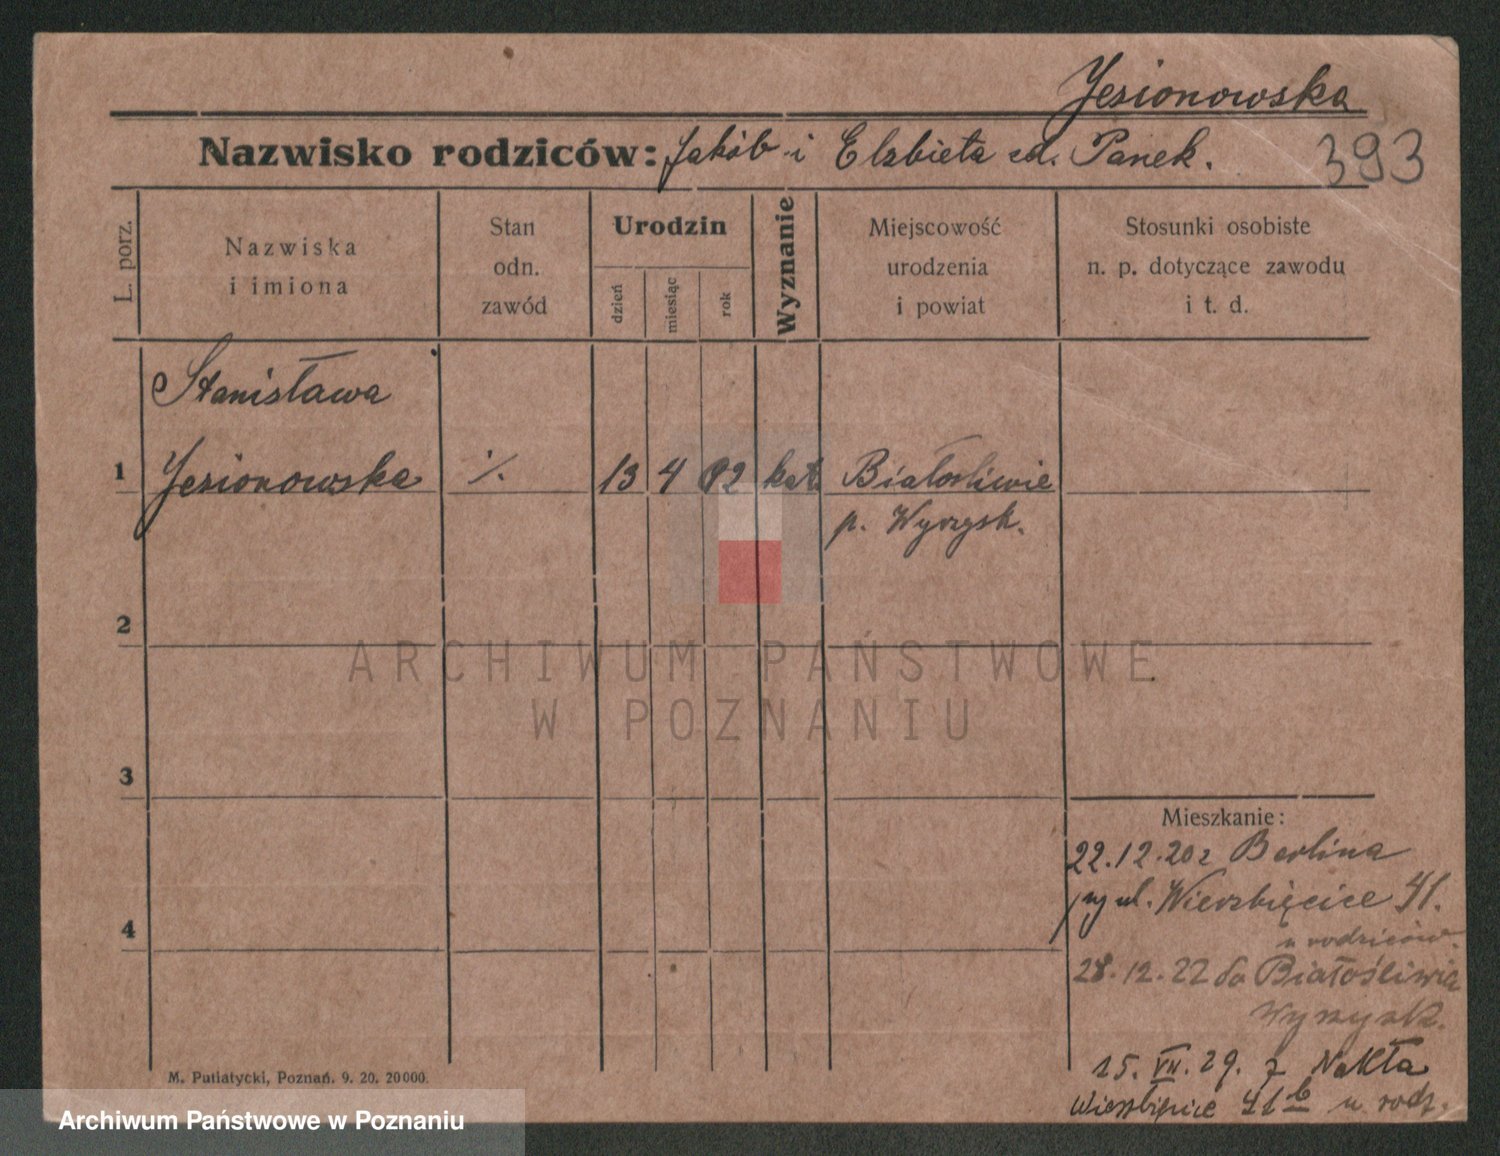 Jesionowska
Nazwisko rodziców: Jakób i Elżbieta zd. Panek.
393
L. porz.
Nazwiska
i imiona
Stan
odn.
zawód
Urodzin
dzień
miesiąc
rok
Wyznanie
Miejscowość
urodzenia
i powiat
Stosunki osobiste
n. p. dotyczące zawodu
i t. d.
Stanisława
1 Jesionowska ·/. 13 4 02 kat. Białośliwie
p. Wyrzysk.
2
ARCHIWUM PAŃSTWOWE
W POZNANIU
3
Mieszkanie:
22.12.20 z Berlina
ul. Wierzbięcice 41.
u rodziców.
4
28.12.22 do Białośliwia
Wyrzysk.
15. VII. 29. z Nakła
Wierzbięcice 41b u rodz.
M. Putiatycki, Poznań. 9. 20. 20000.
Archiwum Państwowe w Poznaniu